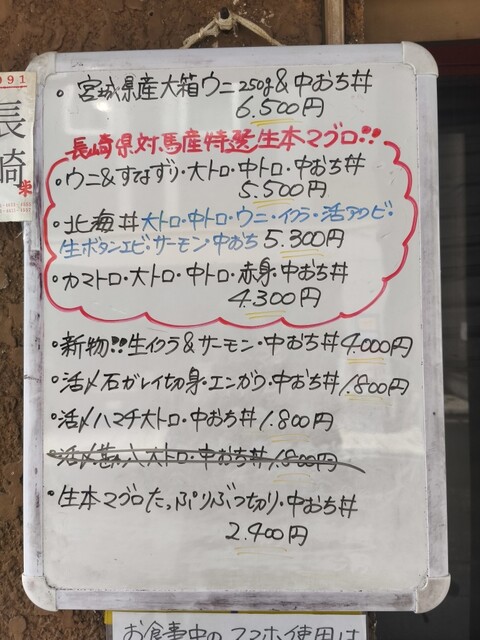 991
長崎
・宮城県産大箱ウニ250g&中おち丼
6.500円
長崎県対馬産特選生本マグロ!!
・ウニ&すなずり・大トロ・中トロ・中おち丼
5.500円
・北海丼大トロ・中トロ・ウニ・イクラ・活アワビ・
生ボタンエビ・サーモン・中おち 5.300円
・カマトロ・大トロ・中トロ・赤身・中おち丼
4.300円
・新物!!生イクラ&サーモン・中おち丼 4.000円
・活〆石ガレイ切身・エンガワ・中おち丼 1.800円
・活〆ハマチ大トロ・中おち丼 1.800円
・活〆勘八大トロ・中おち丼 1.800円
・生本マグロたっぷりぶつ切り・中おち丼
2.400円
お食事中のスマホ使用は